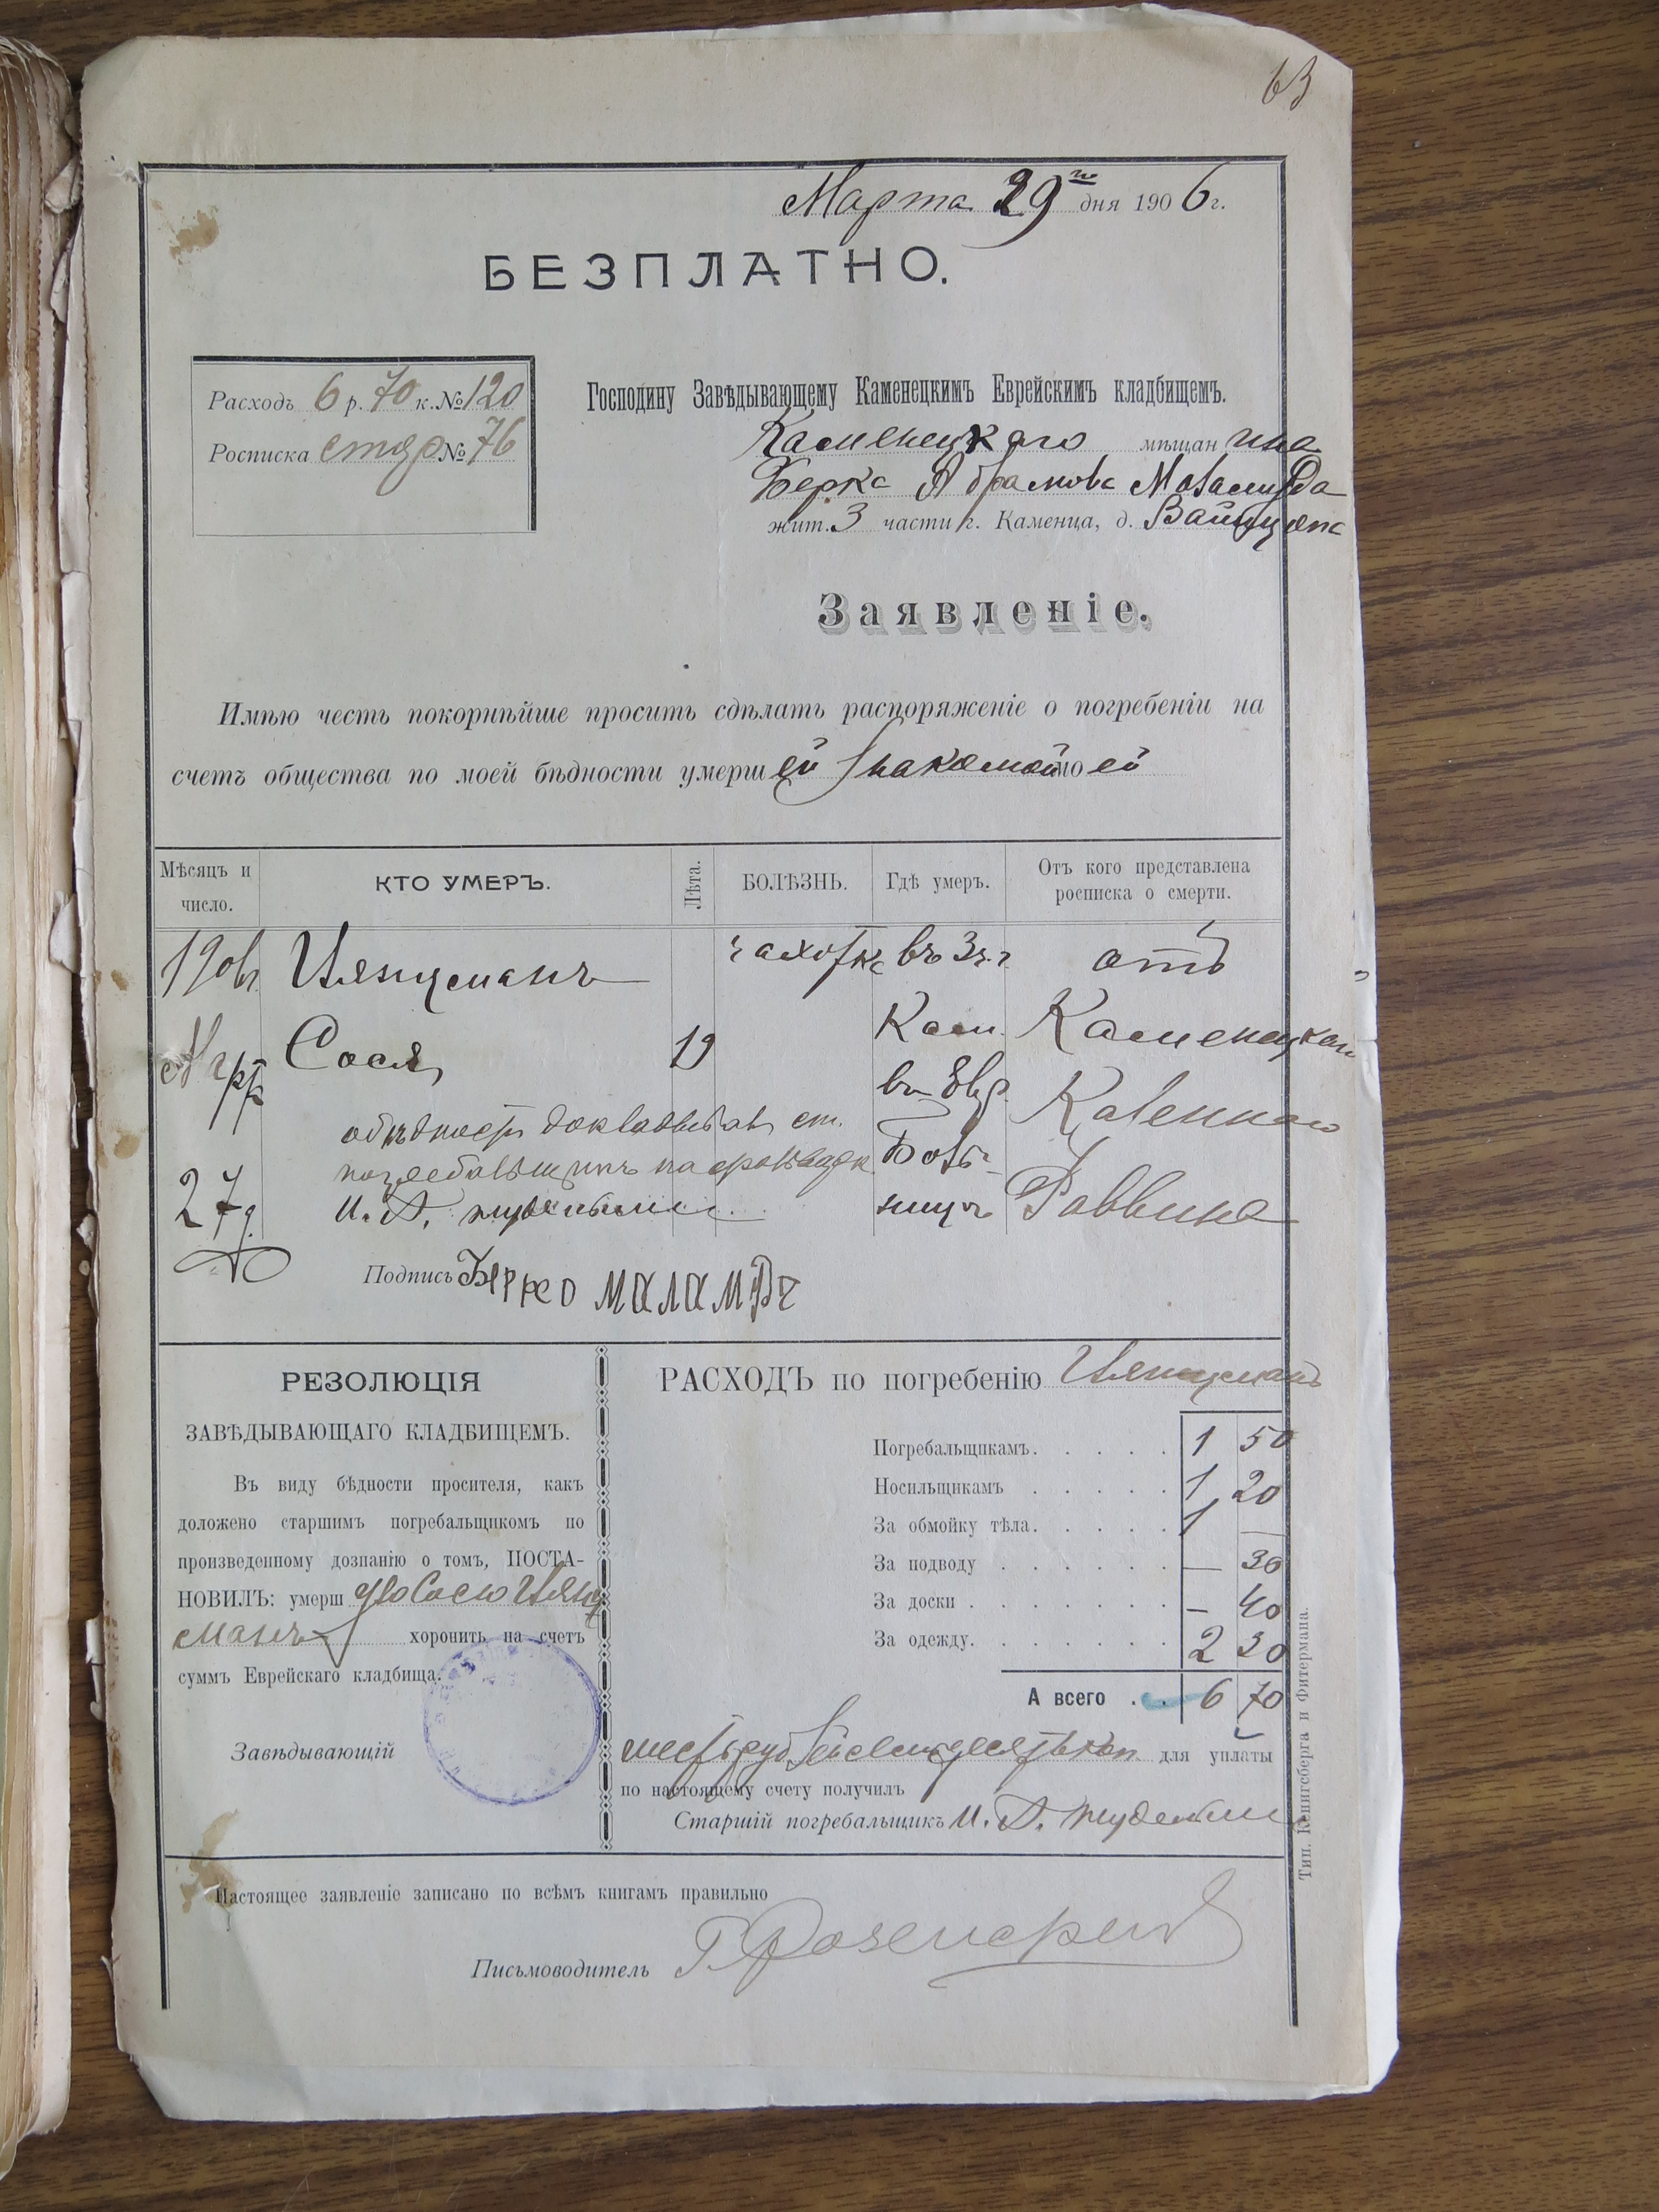 63
Марта 29го дня 1906 г.
БЕЗПЛАТНО.
Расходъ 6 р. 70 к. № 120
Росписка стар № 76
Господину Завѣдывающему Каменецкимъ Еврейскимъ кладбищемъ.
Каменецкаго мѣщанина
Берка Абрамова
жит. 3 части г. Каменца, д.
Заявленіе.
Имѣю честь покорнѣйше просить сдѣлать распоряженіе о погребеніи на
счетъ общества по моей бѣдности умершей знакомой моей
Мѣсяцъ и число.
КТО УМЕРЪ.
Лѣта.
БОЛѢЗНЬ.
Гдѣ умеръ.
Отъ кого представлена росписка о смерти.
1906г. Цянцманъ чахотка въ 3 ч. г. отъ
Сося 19 Кам. Каменецкаго
въ Евр. Казеннаго
27 Боль-
ницѣ Раввина
И. А.
Подпись Берко маламВч
РЕЗОЛЮЦІЯ
ЗАВѢДЫВАЮЩАГО КЛАДБИЩЕМЪ.
Въ виду бѣдности просителя, какъ
доложено старшимъ погребальщикомъ по
произведенному дознанію о томъ, ПОСТА-
НОВИЛЪ: умершую Сосю Цянц
манъ хоронить на счетъ
суммъ Еврейскаго кладбища.
Завѣдывающій
РАСХОДЪ по погребенію Цянцманъ
Погребальщикамъ. . . . . 1 50
Носильщикамъ . . . . . 1 20
За обмойку тѣла. . . . . 1 —
За подводу . . . . . . — 30
За доски . . . . . . . — 40
За одежду. . . . . . . 2 30
А всего . . 6 70
шесть руб. семьдесятъ коп. для уплаты
по настоящему счету получилъ
Старшій погребальщикъ И. А.
Настоящее заявленіе записано по всѣмъ книгамъ правильно
Письмоводитель
Тип. Кенигсберга и Фитермана.